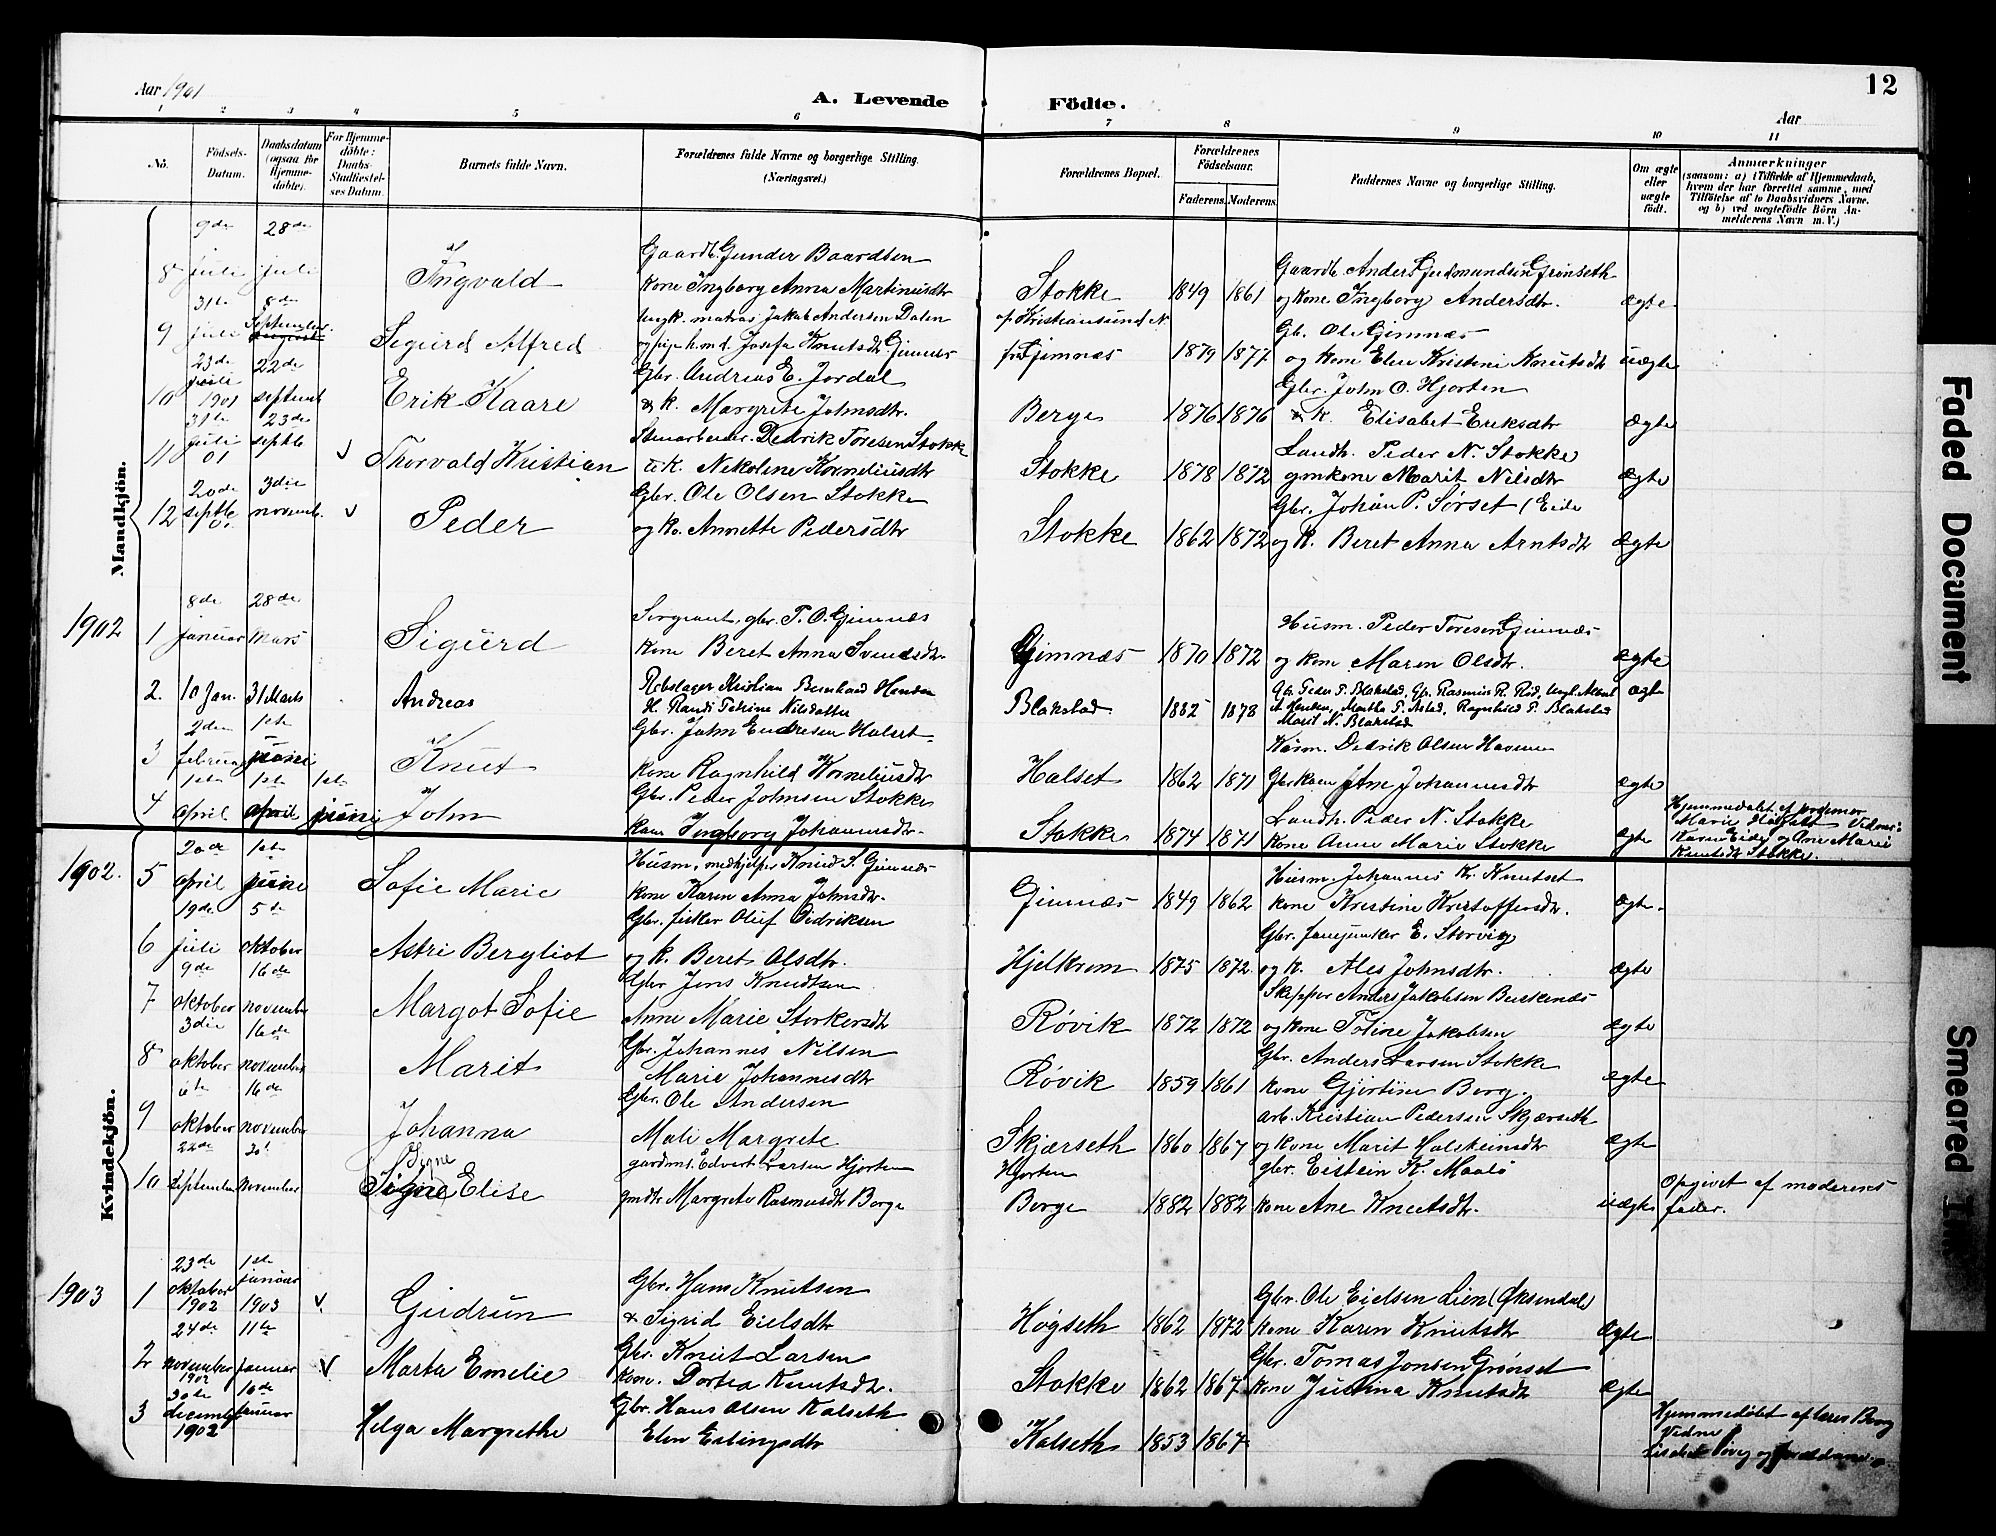 Aar 1901
A. Levende Födte.
12
Aar
1 2 3 4 5 6 7 8 9 10 11
No. Födsels-Datum. Daabsdatum (ogsaa for Hjemme-döbte). For Hjemme-döbte: Daabs-Stadfæstel-ses Datum. Barnets fulde Navn. Forældrenes fulde Navne og borgerlige Stilling. (Næringsvei.) Forældrenes Bopæl. Forældrenes Födselsaar. Faderens. Moderens. Faddernes Navne og borgerlige Stilling. Om ægte eller uægte födt. Anmærkninger (saasom: a) i Tilfælde af Hjemmedaab, hvem der har forrettet samme, med Tilföielse af to Daabsvidners Navne, og b) ved uægtefödte Börn An-melderens Navn m. V.)
Mandkjön.
8 9de juli 28de juli Ingvald Gaardb. Gunder Baardsen
kone Ingborg Anna Martinusdtr Stokke 1849 1861 Gaardb. Anders Gudmundsen Grønseth
og kone Ingborg Andersdtr. ægte
9 31te juli 8de September Sigurd Alfred ungk. matros Jakob Andersen Dalen
og pige h.m.d. Josefa Knutsdtr Gimnæs af Kristiansund N.
fra Gimnæs 1879 1877 Gb. Ole Gimnæs
og kone Elen Kristine Knutsdtr uægte
10 23de juli 1901 22de septemb Erik Kaare Gbr. Andreas E. Jordal
& k. Margrete Johnsdtr. Berge 1876 1876 Gbr. John O. Hjorten
& k. Elisabet Eriksdtr ægte
11 31te juli 01 23de septb v Thorvald Kristian Stenarbeider Dedrik Toresen Stokke
& k. Nekoline Korneliusdtr Stokke 1878 1872 Landh. Peder N. Stokke
gmkone Marit Nilsdtr ægte
12 20de septb 01 3die novemb. v Peder Gbr. Ole Olsen Stokke
og ko. Annette Pedersdtr Stokke 1862 1872 Gbr. Johan P. Sørset (Eide
og k. Beret Anna Arntsdtr ægte
1902
1 8de januar 28de mars Sigurd Sergeant, gbr. T. O. Gimnæs
kone Beret Anna Svendsdtr. Gimnæs 1870 1872 Husm. Peder Toresen Gimnæs
og kone Maren Olsdtr. ægte
2. 10 Jan. 31 Marts Andreas Rebslager Kristian Bernhard Hansen
H. Randi Petrine Nilsdatter Blakstad 1882 1878 Gb. Peder P. Blakstad, Gb. Rasmus R. Rød, Ungk.
Martha P. Astad, Ragnhild P. Blakstad
Marit N. Blakstad ægte
3 2den februar 1ste juni Knut Gbr. John Endresen Halset
kone Ragnhild Korneliusdtr Halset 1862 1871 Husm. Dedrik Olsen Havnen
Gbrkone Ane Johannesdtr ægte
4 1ste april 1ste april 1ste juni John Gbr. Peder Johnsen Stokke
kone Ingborg Johannesdtr. Stokke 1874 1871 Landh. Peder N. Stokke
kone Anne Marie Stokke ægte Hjemmedøbt af jordemor
Marie Vidner:
Karen Eide og Ane Marie
Knutsdtr Stokke.
1902.
Kvindekjön.
5 20de april 1ste juni Sofie Marie Husm., medhjelper Knud S. Gimnæs
kone Karen Anna Johnsdtr. Gimnæs 1849 1862 Husm. Johannes Kr. Knutset
kone Kristine Kristoffersdtr. ægte.
6 19de juli 5te oktober Astri Bergliot Gbr. fisker Oluf Didriksen
og k. Beret Olsdtr. Hjelkrem 1875 1872. Gbr. E. Storvig
og k. Ales Johnsdtr. ægte
7 9de oktober 16de november Margot Sofie Gbr. Jens Knudtsen
Anne Marie Storkersdtr Røvik 1872 1872 Skipper Anders Jakobsen
og kone Toline Jakobsen ægte
8 3die oktober 16de november Marit Gbr. Johannes Nilsen
Marie Johannesdtr Røvik 1859 1861 Gbr. Anders Larsen Stokke
kone Gjertine Berg. ægte
9 6te oktober 16de november Johanna Gbr. Ole Andersen
Mali Margrete Skjærseth 1860 1867 arb. Kristian Pedersen Skjærseth
og kone Marit Halsteinsdtr ægte
10 22de september november Signe Elise gardms. Edvart Larsen Hjorten
gmdtr Margrete Rasmusdtr Berge Hjorten
Berge 1882 1882 gbr. Eistein K. Maalø
kone Ane Knutsdtr. uægte Opgivet af moderens
fader.
1903
1 23de oktober 1902 1ste januar 1903 v. Gudrun Gbr. Hans Knutsen
& Sigrid Eielsdtr Høgseth 1862 1872 Gbr. Ole Eielsen Lien (Øksendal)
kone Karen Knutsdtr ægte
2 24de november 1902 11te januar v Marta Emelie Gbr. Knut Larsen
kone. Dortea Knutsdtr. Stokke 1862 1867 Gbr. Tomas Jonsen Grønset
kone Justina Knutsdtr ægte
3 30te december 1902 16de januar Helga Margrethe Gbr. Hans Olsen Kalseth
Elen Erlingsdtr Kalseth 1853 1867 Hjemmedøbt af lærer Berg
Vidne
Faded Document
Smeared Ink